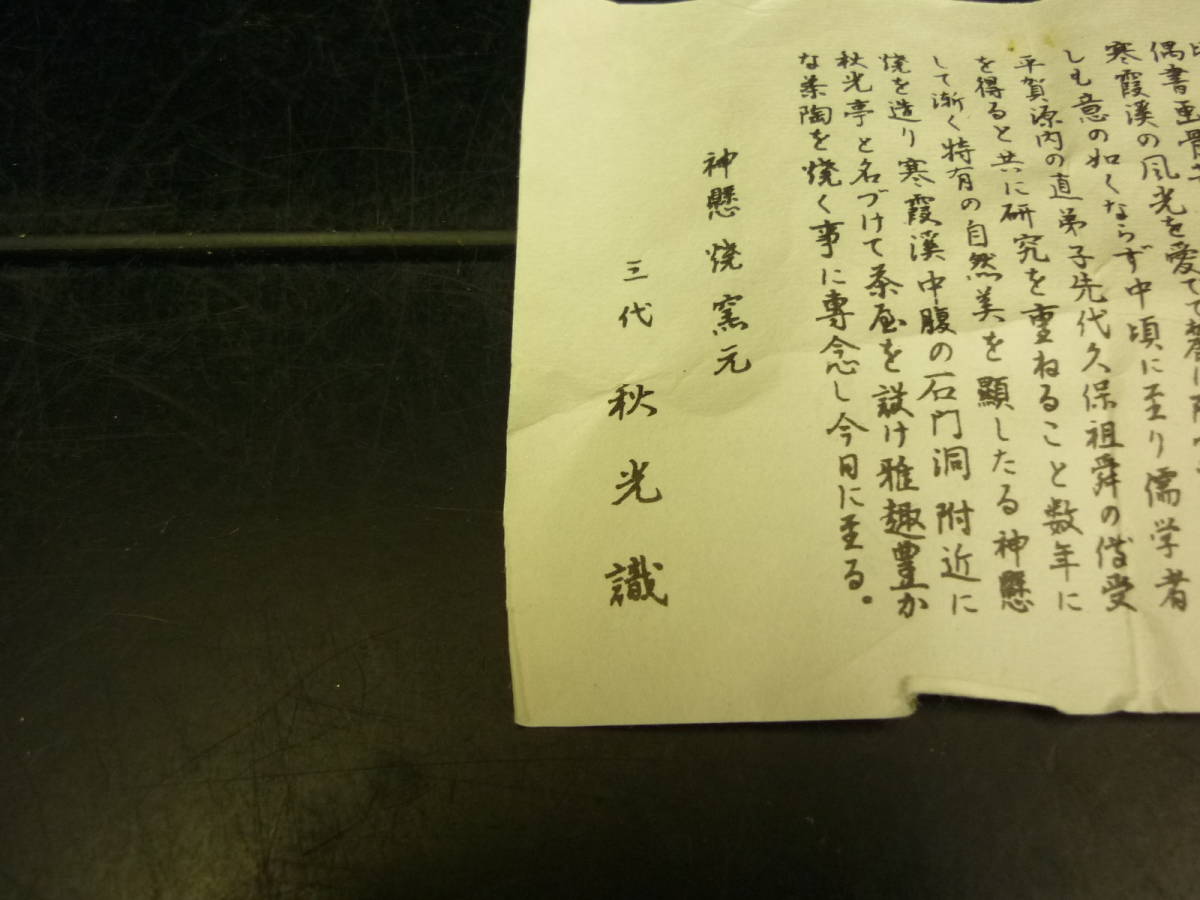 偶書画骨
寒霞溪の風光を愛でて
しも意の如くならず中頃に至り儒学者
平賀源内の直弟子先代久保祖舜の伝受
を得ると共に研究を重ねること数年に
して漸く特有の自然美を顕したる神懸
焼を造り寒霞溪中腹の石門洞附近に
秋光亭と名づけて茶屋を設け雅趣豊か
な茶陶を焼く事に専念し今日に至る。
神懸焼窯元
三代秋光識